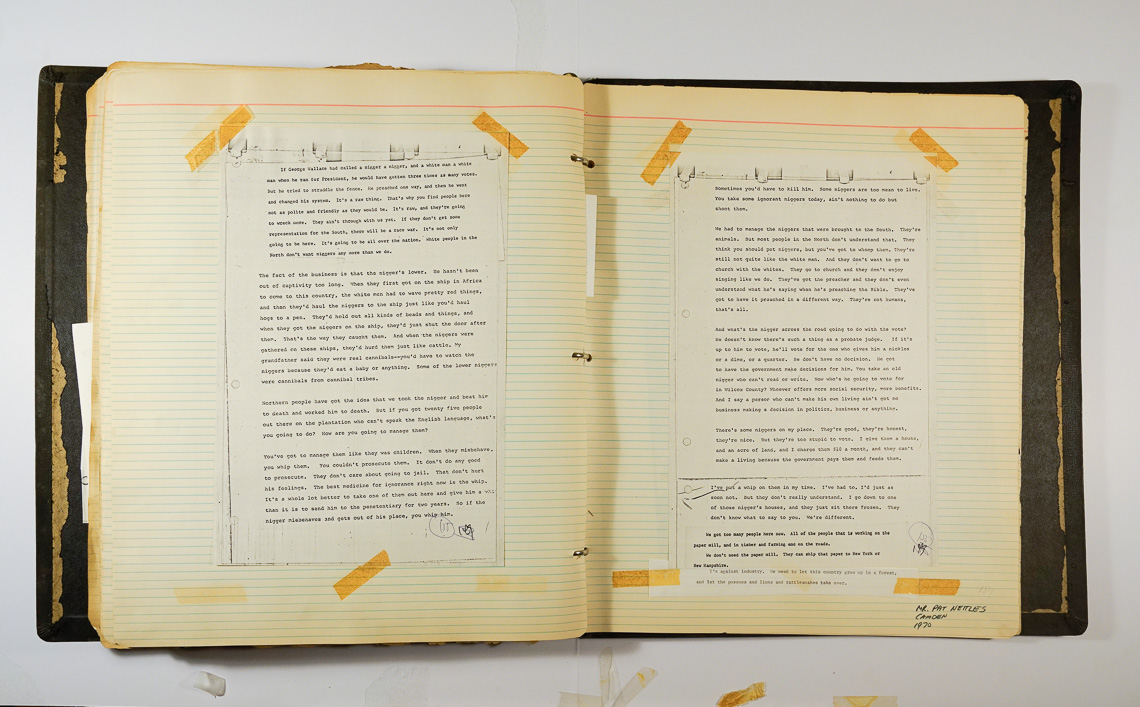 If George Wallace had called a nigger a nigger, and a white man a white
man when he ran for President, he would have gotten three times as many votes.
But he tried to straddle the fence. He preached one way, and then he went
and changed his system. It's a raw thing. That's why you find people here
not as polite and friendly as they would be. It's raw, and they're going
to wreck more. They ain't through with us yet. If they don't get some
representation for the South, there will be a race war. It's not only
going to be here. It's going to be all over the nation. White people in the
North don't want niggers any more than we do.
The fact of the business is that the nigger's lower. He hasn't been
out of captivity too long. When they first got on the ship in Africa
to come to this country, the white men had to wave pretty red things,
and then they'd haul the niggers to the ship just like you'd haul
hogs to a pen. They'd hold out all kinds of beads and things, and
when they got the niggers on the ship, they'd just shut the door after
them. That's the way they caught them. And when the niggers were
gathered on these ships, they'd hurd them just like cattle. My
grandfather said they were real cannibals--you'd have to watch the
niggers because they'd eat a baby or anything. Some of the lower niggers
were cannibals from cannibal tribes.
Northern people have got the idea that we took the nigger and beat him
to death and worked him to death. But if you got twenty five people
out there on the plantation who can't speak the English language, what's
you going to do? How are you going to manage them?
You've got to manage them like they was children. When they misbehave,
you whip them. You couldn't prosecute them. It don't do any good
to prosecute. They don't care about going to jail. That don't hurt
his feelings. The best medicine for ignorance right now is the whip.
It's a whole lot better to take one of them out here and give him a
than it is to send him to the penetentiary for two years. So if the
nigger misbehaves and gets out of his place, you whip him.
Sometimes you'd have to kill him. Some niggers are too mean to live.
You take some ignorant niggers today, ain't nothing to do but
shoot them.
We had to manage the niggers that were brought to the South. They're
animals. But most people in the North don't understand that. They
think you should pet niggers, but you've got to whoop them. They're
still not quite like the white man. And they don't want to go to
church with the whites. They go to church and they don't enjoy
singing like we do. They've got the preacher and they don't even
understand what he's saying when he's preaching the Bible. They've
got to have it preached in a different way. They're not humans,
that's all.
And what's the nigger across the road going to do with the vote?
He doesn't know there's such a thing as a probate judge. If it's
up to him to vote, he'll vote for the one who gives him a nickles
or a dime, or a quarter. He don't have no decision. He got
to have the government make decisions for him. You take an old
nigger who can't read or write. Now who's he going to vote for
in Wilcox County? Whoever offers more social security, more benefits.
And I say a person who can't make his own living ain't got no
business making a decision in politics, business or anything.
There's some niggers on my place. They're good, they're honest,
they're nice. But they're too stupid to vote. I give them a house,
and an acre of land, and I charge them $10 a month, and they can't
make a living because the government pays them and feeds them.
I've put a whip on them in my time. I've had to. I'd just as
soon not. But they don't really understand. I go down to one
of those nigger's houses, and they just sit there frozen. They
don't know what to say to you. We're different.
We got too many people here now. All of the people that is working on the
paper mill, and in timber and farming and on the roads.
We don't need the paper mill. They can ship that paper to New York or
New Hampshire.
I'm against industry. We need to let this country grow up in a forest,
and let the possums and lions and rattlesnakes take over.
MR. PAT NETTLES
CAMDEN
1970